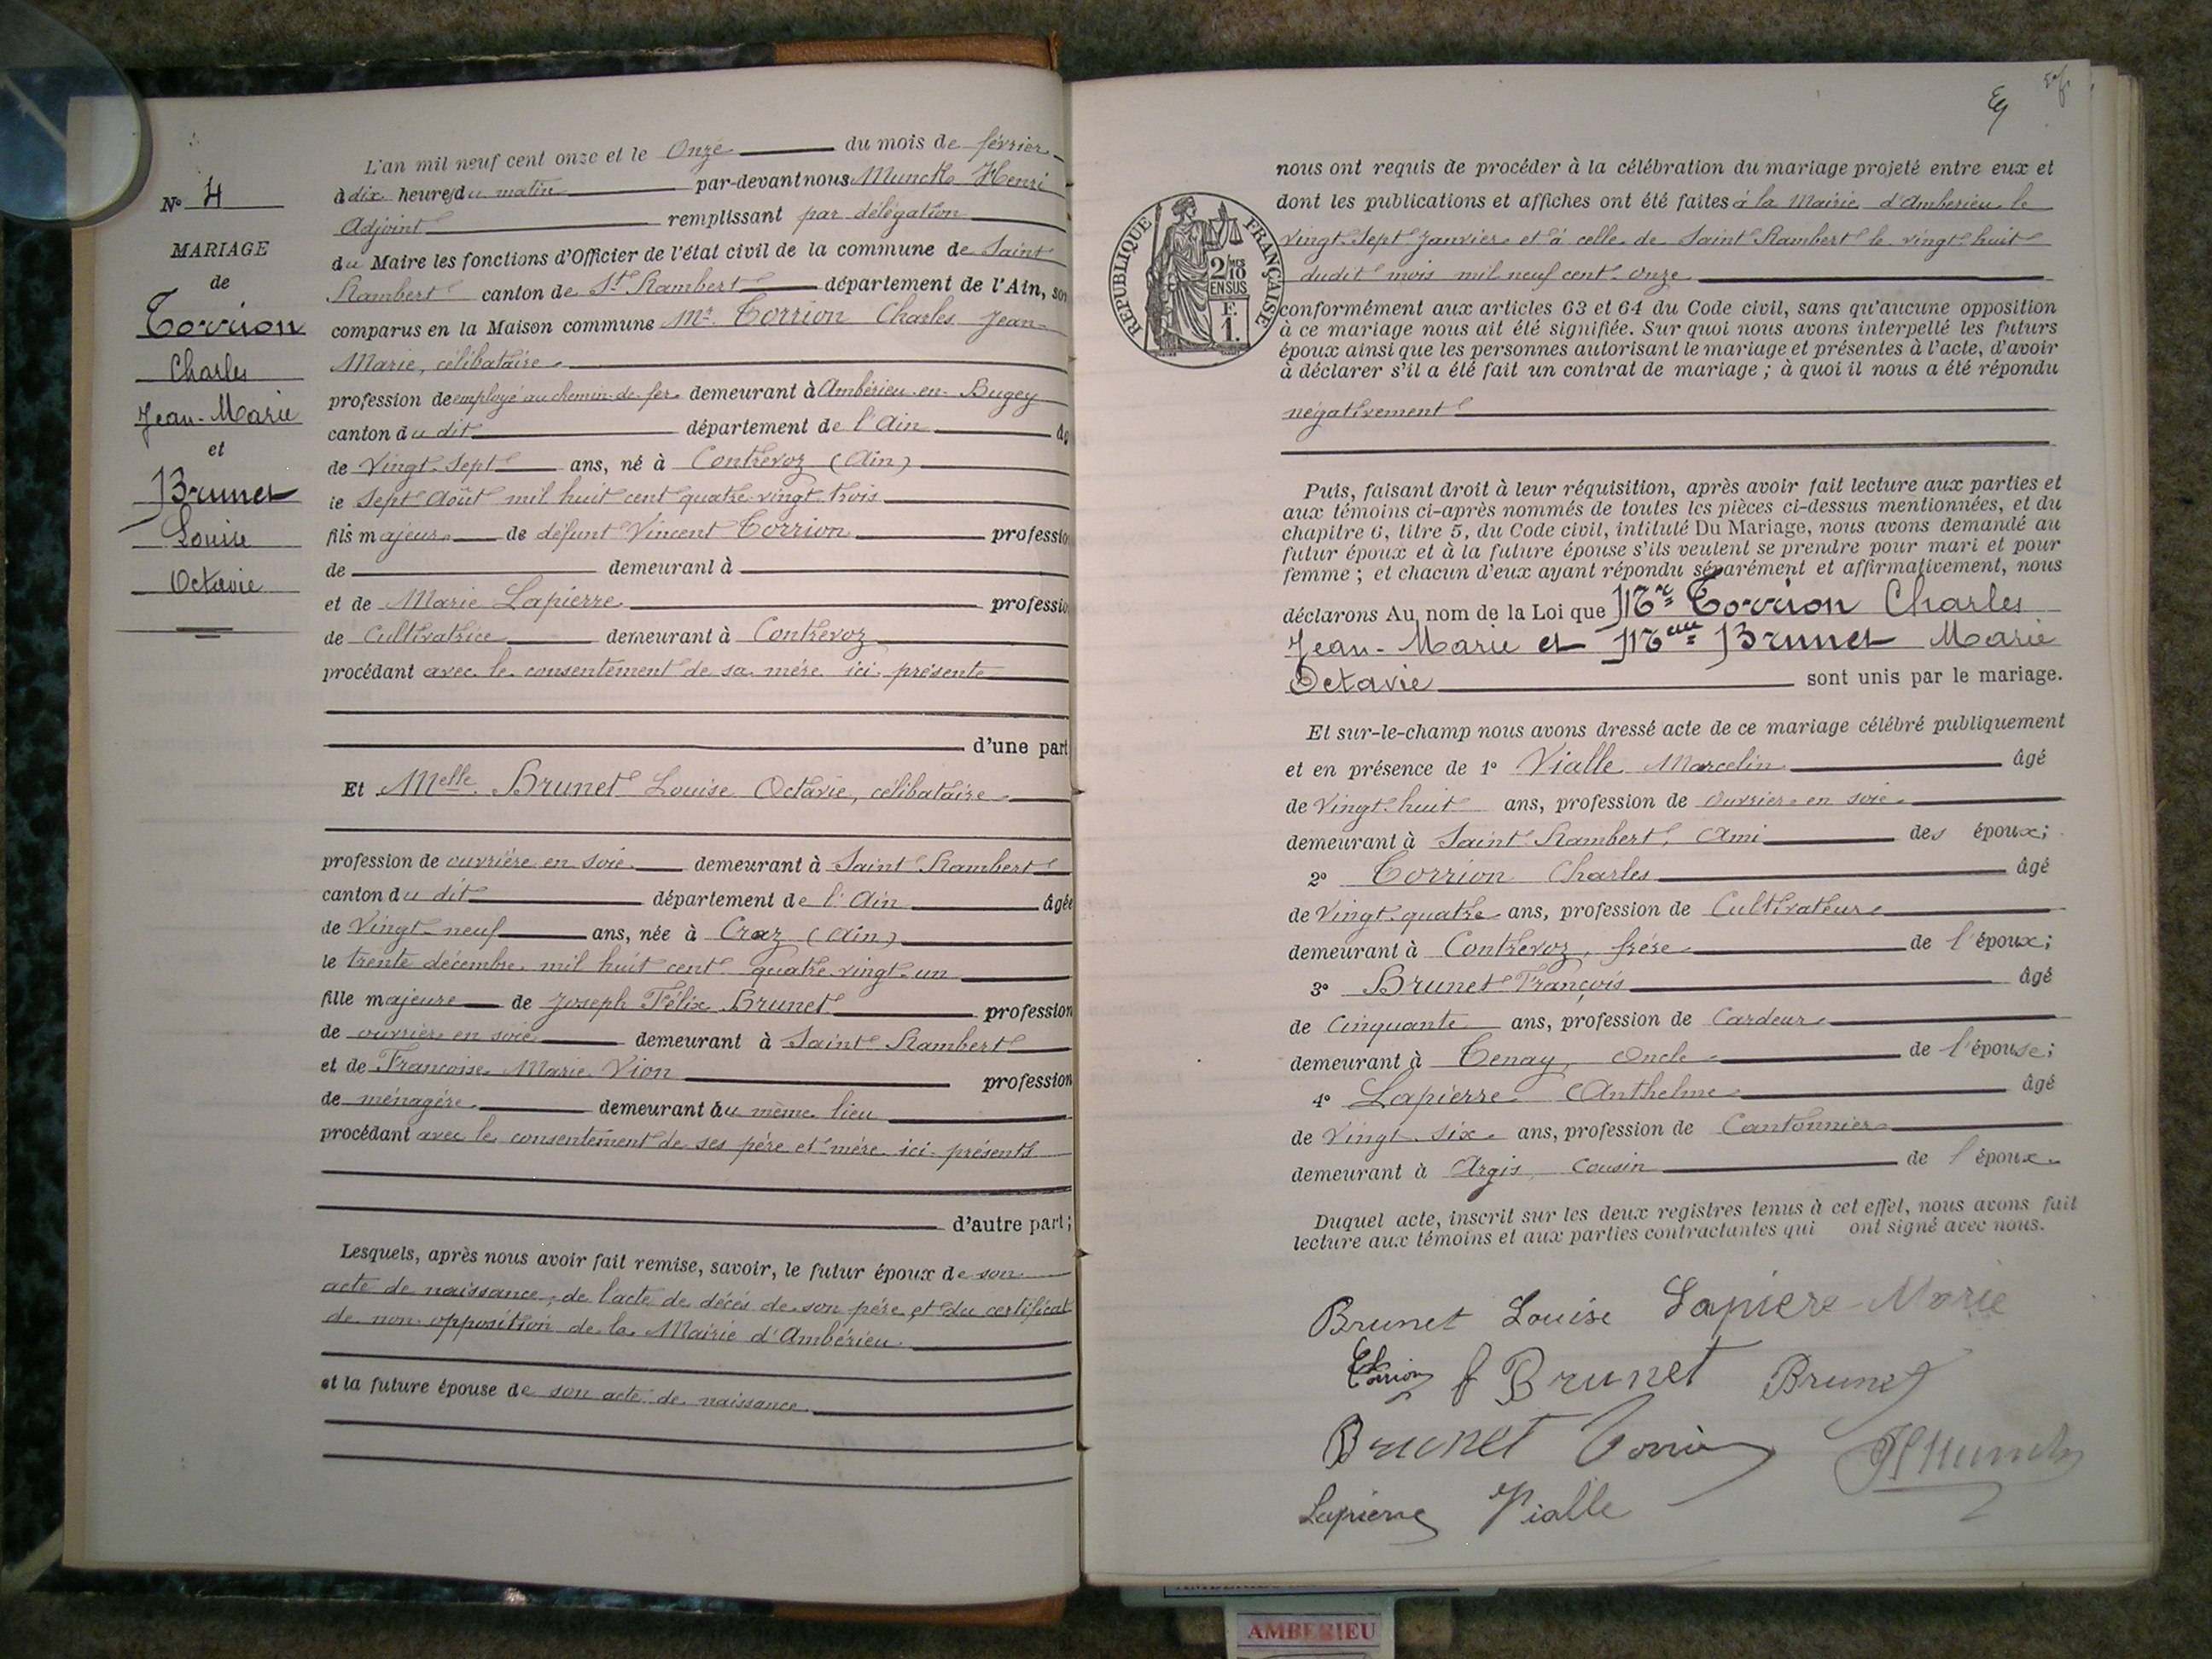 N° 4
MARIAGE
de
Torrion
Charles
Jean-Marie
et
Brunet
Louise
Octavie
L'an mil neuf cent onze et le Onze du mois de février
à dix heures du matin par-devant nous Munck Henri
Adjoint remplissant par délégation
du Maire les fonctions d'Officier de l'état civil de la commune de Saint
Rambert canton de St Rambert département de l'Ain, son
comparus en la Maison commune Mr. Torrion Charles Jean-
Marie, célibataire
profession de employé au chemin de fer demeurant à Ambérieu-en-Bugey
canton du dit département de l'Ain
de Vingt-sept ans, né à Contrevoz (Ain)
le Sept Août mil huit cent quatre vingt trois
fils majeur de défunt Vincent Torrion professio
de demeurant à
et de Marie Lapierre professio
de Cultivatrice demeurant à Contrevoz
procédant avec le consentement de sa mère ici présente
d'une part
Et Melle Brunet Louise Octavie, célibataire
profession de ouvrière en soie demeurant à Saint Rambert
canton du dit département de l'Ain âgée
de Vingt-neuf ans, née à Craz (Ain)
le trente décembre mil huit cent quatre vingt-un
fille majeure de Joseph Félix Brunet profession
de ouvrier en soie demeurant à Saint Rambert
et de Françoise Marie Vion profession
de ménagère demeurant au même lieu
procédant avec le consentement de ses père et mère ici présents
d'autre part;
Lesquels, après nous avoir fait remise, savoir, le futur époux de son
acte de naissance, de l'acte de décès de son père et du certificat
de non opposition de la Mairie d'Ambérieu
et la future épouse de son acte de naissance
nous ont requis de procéder à la célébration du mariage projeté entre eux et
dont les publications et affiches ont été faites à la Mairie d'Ambérieu le
vingt-sept Janvier et à celle de Saint Rambert le vingt huit
dudit mois mil neuf cent onze
RÉPUBLIQUE FRANÇAISE
2/MES
10
EN SUS
F.
1.
conformément aux articles 63 et 64 du Code civil, sans qu'aucune opposition
à ce mariage nous ait été signifiée. Sur quoi nous avons interpellé les futurs
époux ainsi que les personnes autorisant le mariage et présentes à l'acte, d'avoir
à déclarer s'il a été fait un contrat de mariage; à quoi il nous a été répondu
négativement
Puis, faisant droit à leur réquisition, après avoir fait lecture aux parties et
aux témoins ci-après nommés de toutes les pièces ci-dessus mentionnées, et du
chapitre 6, titre 5, du Code civil, intitulé Du Mariage, nous avons demandé au
futur époux et à la future épouse s'ils veulent se prendre pour mari et pour
femme; et chacun d'eux ayant répondu séparément et affirmativement, nous
déclarons Au nom de la Loi que Mr Torrion Charles
Jean-Marie et Melle Brunet Marie
Octavie sont unis par le mariage.
Et sur-le-champ nous avons dressé acte de ce mariage célébré publiquement
et en présence de 1° Vialle Marcelin âgé
de Vingt huit ans, profession de ouvrier en soie
demeurant à Saint Rambert, Ami des époux;
2° Torrion Charles âgé
de Vingt-quatre ans, profession de Cultivateur
demeurant à Contrevoz, frère de l'époux;
3° Brunet François âgé
de Cinquante ans, profession de Cardeur
demeurant à Tenay, Oncle de l'épouse;
4° Lapierre Anthelme âgé
de Vingt six ans, profession de Cantonnier
demeurant à Argis, Cousin de l'époux
Duquel acte, inscrit sur les deux registres tenus à cet effet, nous avons fait
lecture aux témoins et aux parties contractantes qui ont signé avec nous.
Brunet Louise Lapiere Marie
Torrion f Brunet Brunet
Brunet Torrion HMunck
Lapierre Vialle
AMBERIEU